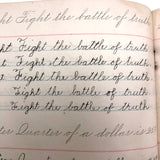 Fight the battle of truth
ht Fight the battle of truth
t Fight the battle of truth.
Fight the battle of truth.
Fight the battle of truth.
Fight the battle of truth.
Quarter of a dollar is